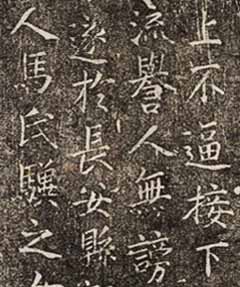 上不逼接下
流譽人無謗
遂於長安縣
人馬氏驥之